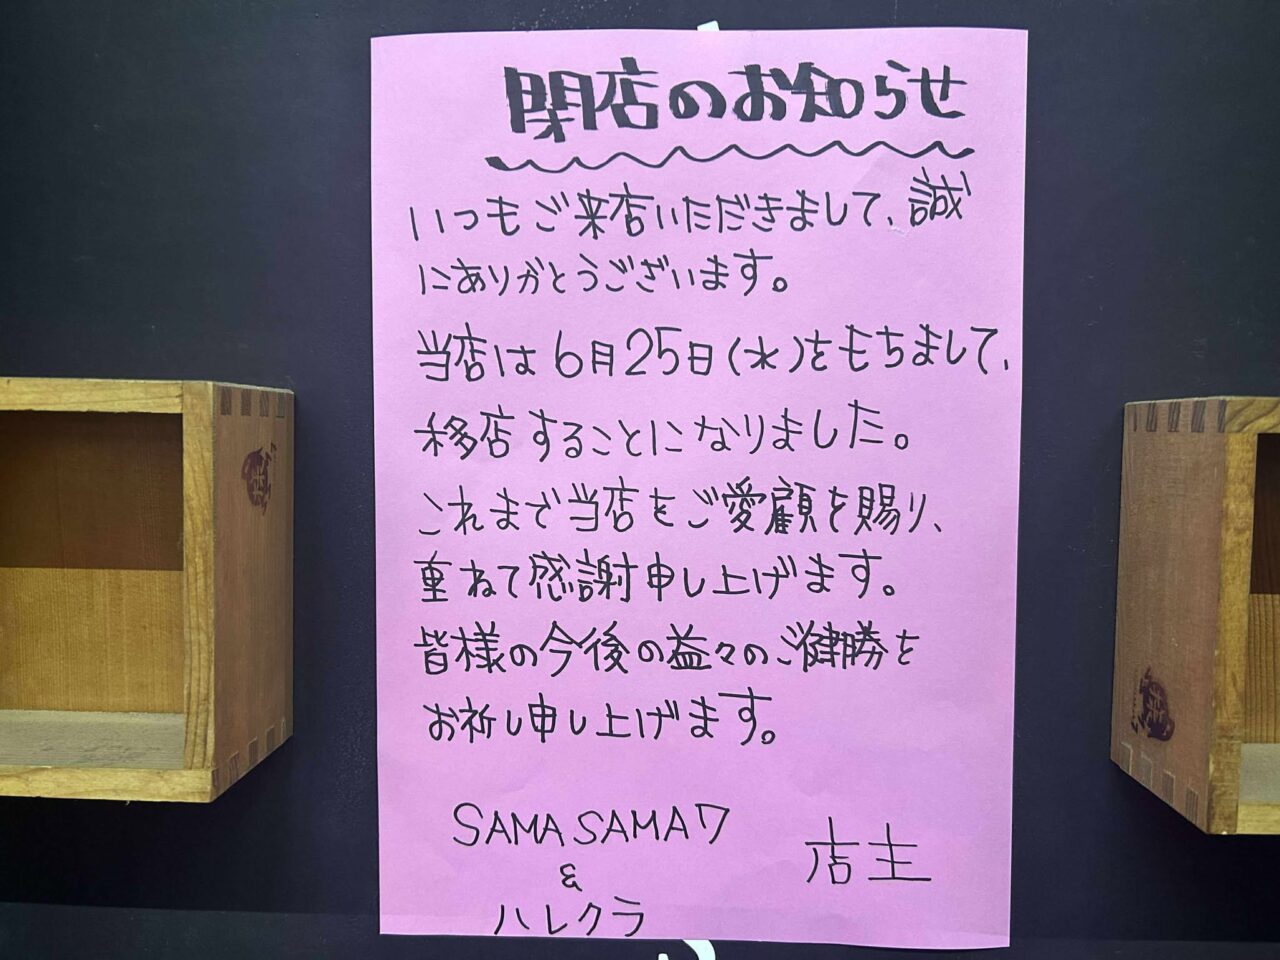 閉店のお知らせ
いつもご来店いただきまして、誠
にありがとうございます。
当店は6月25日(水)をもちまして、
移店することになりました。
これまで当店をご愛顧を賜り、
重ねて感謝申し上げます。
皆様の今後の益々のご健勝を
お祈し申し上げます。
SAMASAMAワ
&
ハレクラ
店主